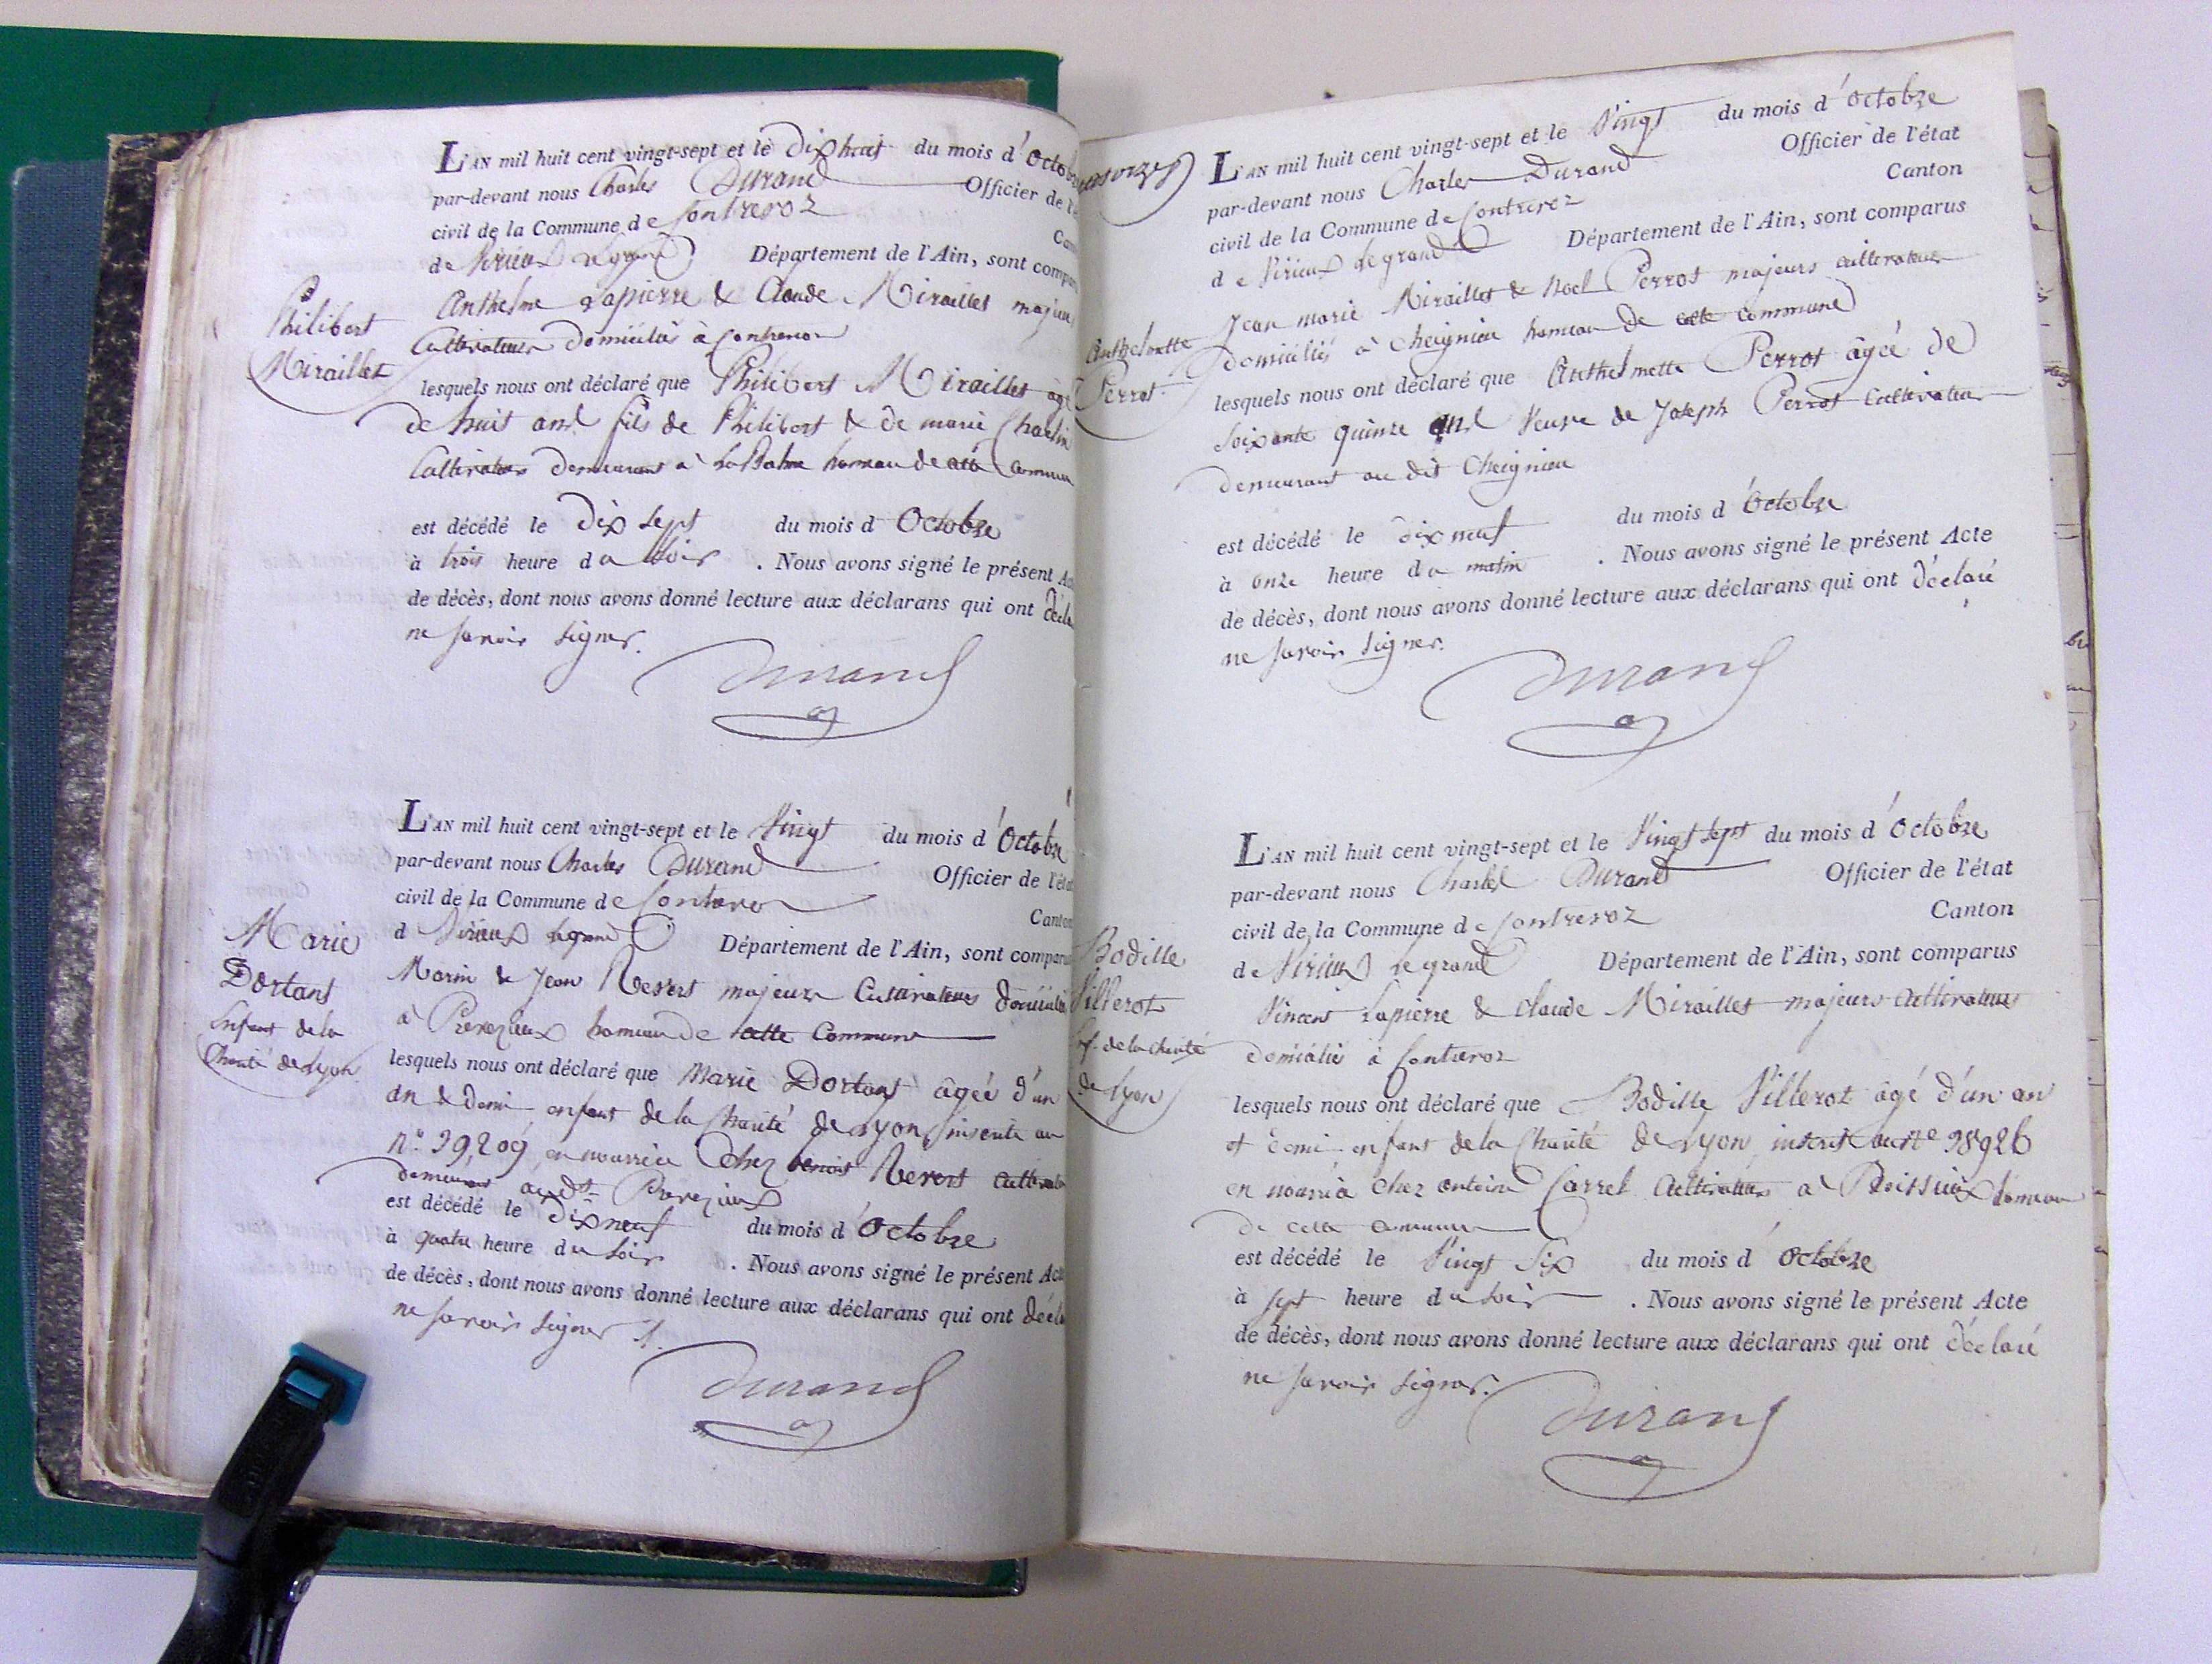 L'AN mil huit cent vingt-sept et le Dix huit du mois d'Octob
par-devant nous Charles Durand Officier de l'é
civil de la Commune de Contrevoz Can
de Virieux le grand Département de l'Ain, sont compar
Philibert
Miraillet
Anthelme Lapierre & Claude Miraillet majeur
Cultivateurs domiciliés à Contrevoz
lesquels nous ont déclaré que Philibert Miraillet âgé
de huit ans fils de Philibert & de marie Charlin
Cultivateur demeurant à La Balme hameau de cette Commun
est décédé le dix sept du mois d Octobre
à trois heure du Soir . Nous avons signé le présent Ac
de décès, dont nous avons donné lecture aux déclarans qui ont décla
ne savoir Signer.
Durand
L'AN mil huit cent vingt-sept et le Vingt du mois d'Octobre
par-devant nous Charles Durand Officier de l'éta
civil de la Commune de Contrevoz Canton
d Virieux le grand Département de l'Ain, sont compar
Marie
Dortans
Enfant de la
Charité de Lyon
Marin & Jean Revert majeurs Cultivateurs domicilié
à Prevezieux hameau de cette Commune
lesquels nous ont déclaré que Marie Dortans âgée d'un
an & demi enfant de la Charité de Lyon, inscrite au
n° 39,209 en nourrice Chez benoit Revert Cultivat
demeurant audt Prevezieux
est décédé le dix neuf du mois d'Octobre
à quatre heure du Soir . Nous avons signé le présent Act
de décès, dont nous avons donné lecture aux déclarans qui ont décla
ne savoir Signer
Durand
L'AN mil huit cent vingt-sept et le Vingt du mois d'Octobre
par-devant nous Charles Durand Officier de l'état
civil de la Commune de Contrevoz Canton
de Virieux le grand Département de l'Ain, sont comparus
Anthelmette
Perrot.
Jean marie Miraillet & Noel Perrot majeurs cultivateurs
domiciliés à Cheignieu hameau de cette commune
lesquels nous ont déclaré que Anthelmette Perrot âgée de
Soixante quinze ans Veuve de Joseph Perrot Cultivateur
demeurant au dit Cheignieu
est décédé le dix neuf du mois d'Octobre
à onze heure du matin . Nous avons signé le présent Acte
de décès, dont nous avons donné lecture aux déclarans qui ont déclaré
ne savoir Signer.
Durand
L'AN mil huit cent vingt-sept et le Vingt sept du mois d'Octobre
par-devant nous Charles Durand Officier de l'état
civil de la Commune de Contrevoz Canton
de Virieux le grand Département de l'Ain, sont comparus
Bodille
Villerot
Enf. de la Charité
de Lyon
Vincent Lapierre & Claude Miraillet majeurs Cultivateurs
domiciliés à Contrevoz
lesquels nous ont déclaré que Bodille Villerot âgé d'un an
et demi enfant de la Charité de Lyon, inscrit au n° 38926
en nourrice Chez antoine Carrel Cultivateur à Boissieux hameau
de cette commune
est décédé le Vingt Six du mois d'Octobre
à sept heure du Soir . Nous avons signé le présent Acte
de décès, dont nous avons donné lecture aux déclarans qui ont déclaré
ne savoir Signer.
Durand